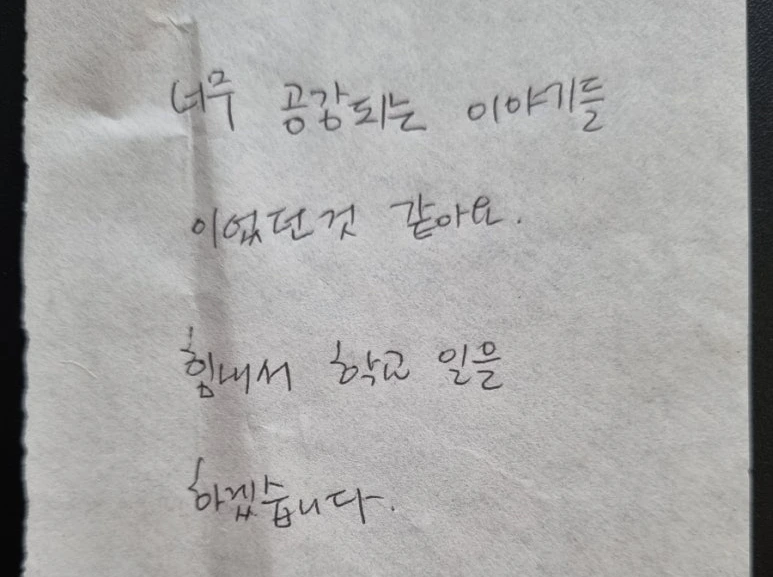 너무 공감되는 이야기들
이었던것 같아요.
힘내서 학교 일을
하겠습니다.